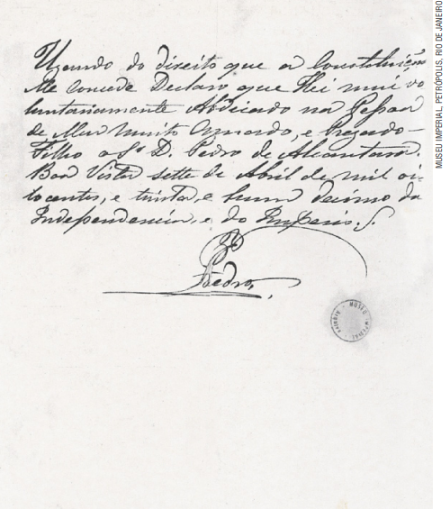 Uzando do direito que a Constituição
Me concede Declaro, que Hei mui vo
luntariamente Abdicado na Pessoa
de Meu muito Amado, e Prezado
Filho o Sr. D. Pedro de Alcantara.
Boa Vista sette de Abril de mil oi
tocentos, e trinta, e hum decimo da
Independencia, e do Imperio.
Pedro
MUSEU IMPERIAL, PETRÓPOLIS, RIO DE JANEIRO